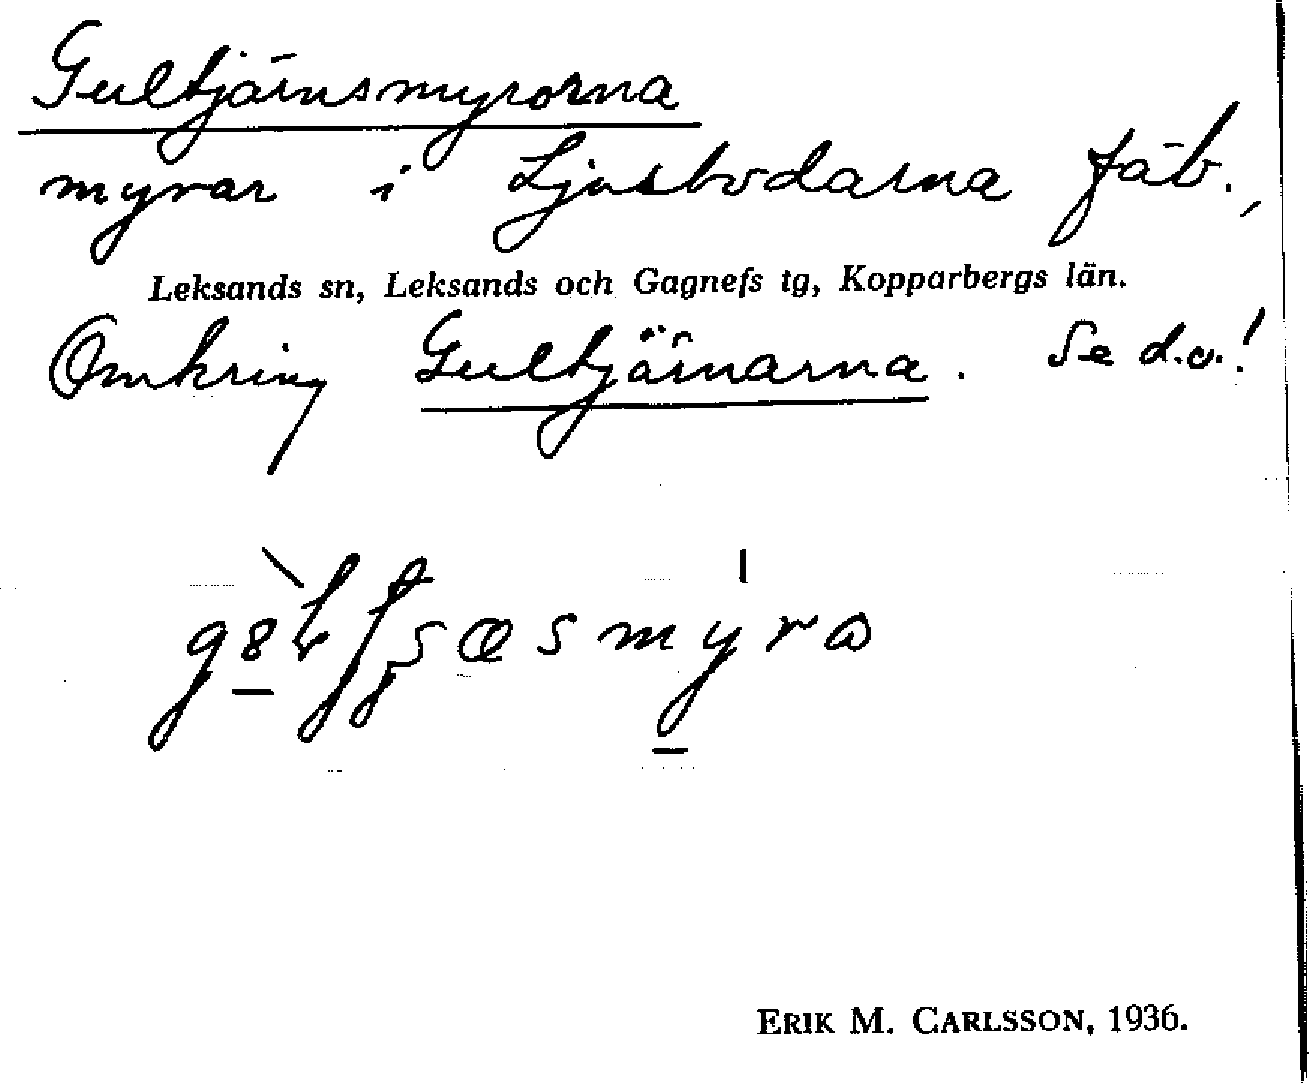 Gultjärnsmyrorna
myrar i Ljusbodarna fäb.,
Leksands sn, Leksands och Gagnefs tg, Kopparbergs län.
Omkring Gultjärnarna. Se d.o.!
ERIK M. CARLSSON, 1936.